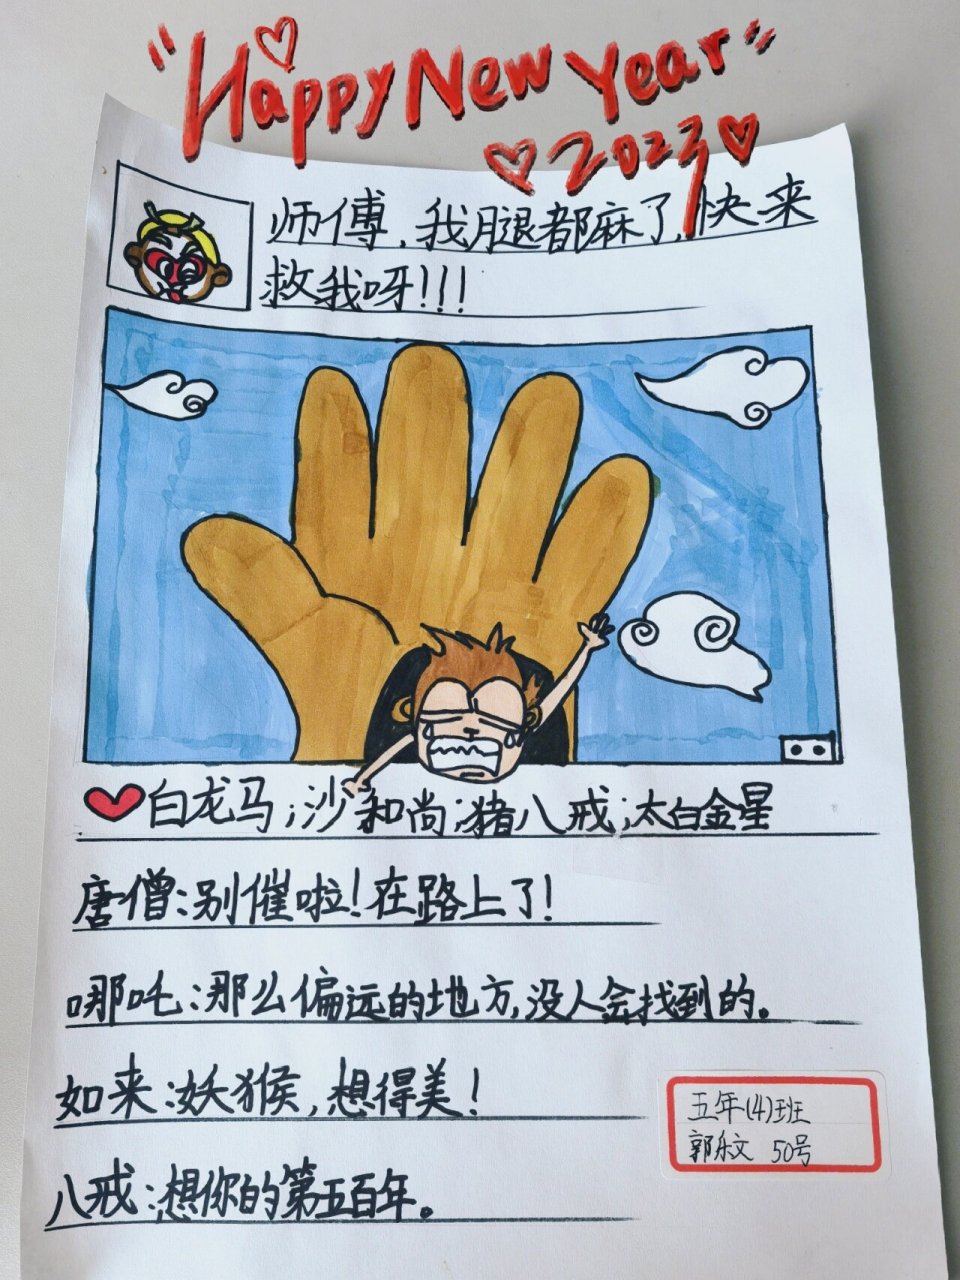 "Happy New Year"
2023
师傅，我腿都麻了，快来
救我呀！！！
白龙马；沙和尚；猪八戒；太白金星
唐僧：别催啦！在路上了！
哪吒：那么偏远的地方，没人会找到的。
如来：妖猴，想得美！
八戒：想你的第五百年。
五年(4)班
郭乐文 50号